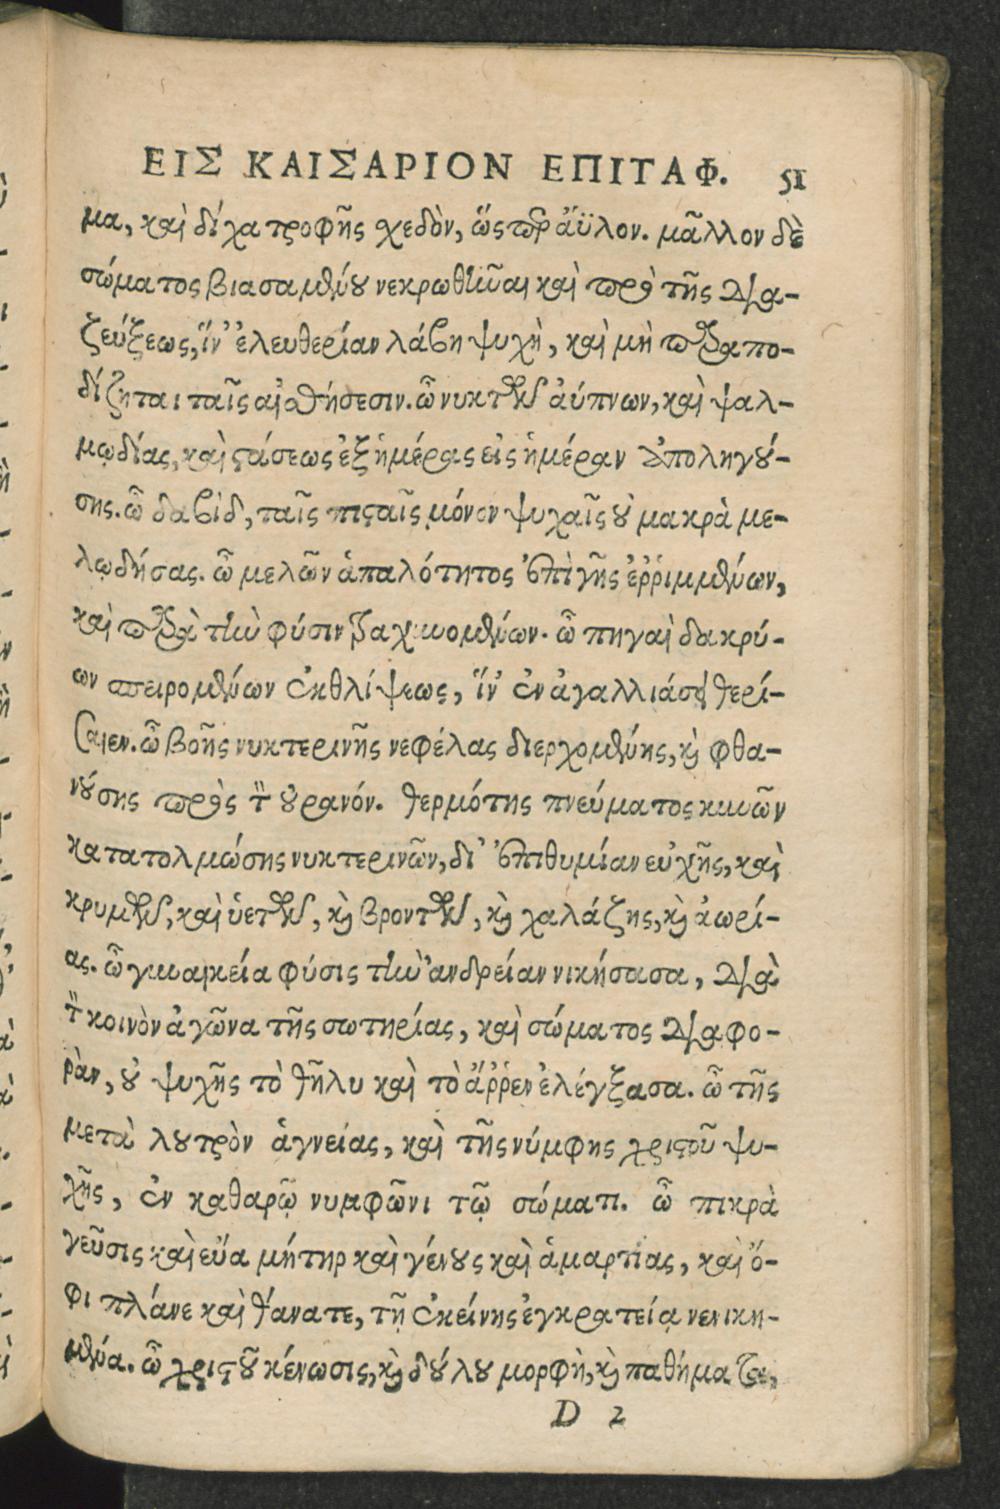 ΕΙΣ ΚΑΙΣΑΡΙΟΝ ΕΠΙΤΑΦ. 51
μα, καὶ δίχα τροφῆς σχεδὸν, ὥσπερ ἄϋλον. μᾶλλον δὲ
σώματος βιασαμένου νεκρωθῆναι καὶ πρὸ τῆς δια-
ζεύξεως, ἵν' ἐλευθερίαν λάβη ψυχὴ, καὶ μὴ παραπο-
δίζηται ταῖς αἰσθήσεσιν. ὢ νυκτῶν ἀύπνων, καὶ ψαλ-
μῳδίας, καὶ στάσεως ἐξ ἡμέρας εἰς ἡμέραν ἀποληγού-
σης. ὢ δαβὶδ, ταῖς πισταῖς μόνον ψυχαῖς οὐ μακρὰ με-
λῳδήσας. ὢ μελῶν ἁπαλότητος ἐπὶ γῆς ἐῤῥιμμένων,
καὶ παρὰ τὴν φύσιν τραχυνομένων. ὢ πηγαὶ δακρύ-
ων σπειρομένων ἐκ θλίψεως, ἵν' ἐν ἀγαλλιάσει θερί-
σαιεν. ὢ βοῆς νυκτερινῆς νεφέλας διερχομένης, καὶ φθα-
νούσης πρὸς τὸν οὐρανόν. θερμότης πνεύματος κυνῶν
κατατολμώσης νυκτερινῶν, δι' ἐπιθυμίαν εὐχῆς, καὶ
κρυμῶν, καὶ ὑετῶν, καὶ βροντῶν, καὶ χαλάζης, καὶ ἀωρί-
ας. ὢ γυναικεία φύσις τὴν ἀνδρείαν νικήσασα, διὰ
τὸν κοινὸν ἀγῶνα τῆς σωτηρίας, καὶ σώματος διαφο-
ρὰν, οὐ ψυχῆς τὸ θῆλυ καὶ τὸ ἄῤῥεν ἐλέγξασα. ὢ τῆς
μετὰ λουτρὸν ἁγνείας, καὶ τῆς νύμφης χριστοῦ ψυ-
χῆς, ἐν καθαρῷ νυμφῶνι τῷ σώματι. ὢ πικρὰ
γεῦσις καὶ εὔα μήτηρ καὶ γένους καὶ ἁμαρτίας, καὶ ὄ-
φι πλάνε καὶ θάνατε, τῇ ἐκείνης ἐγκρατείᾳ νενικη-
μένα. ὢ χριστοῦ κένωσις, καὶ δούλου μορφὴ, καὶ παθήματα,
D 2